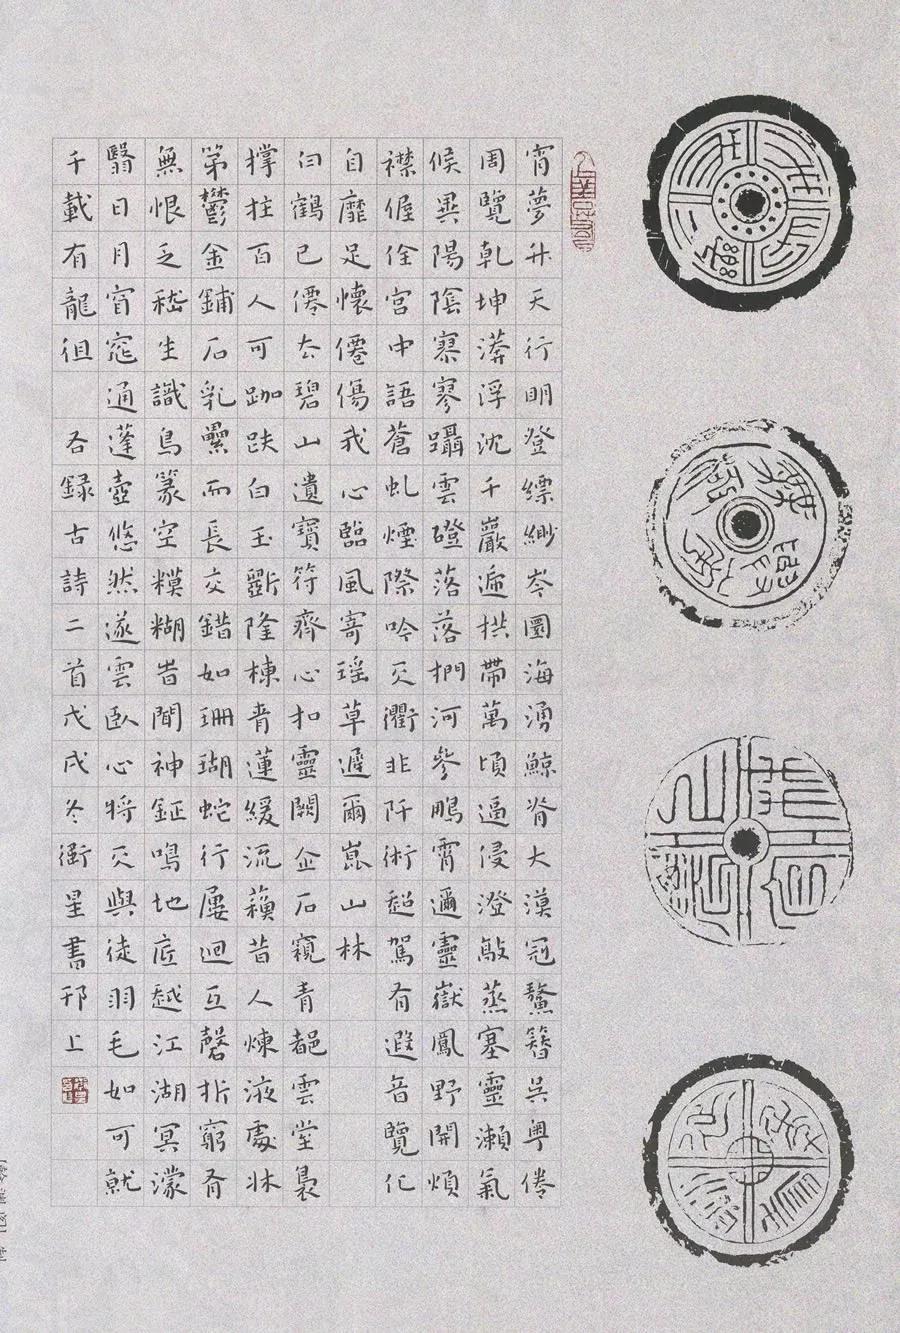 宵夢升天行明登縹緲岑圜海湧鯨脊大漠冠鰲簪吳粵倦
周覽乾坤漭浮沈千巖遞拱帶萬頃逼侵澄蒸塞靈瀨氣
候異陽陰寥躡雲磴落落捫河參鵬霄邇靈嶽鳳野開煩
襟偓佺宮中語蒼虬煙際吟天衢非阡術超駕有遐音覽化
自靡足懷僊傷我心臨風寄瑤草遲爾崑山林
白鶴已僊去碧山遺寶符齊心扣靈闕企石窺青都雲堂裊
撐拄百人可跏趺白玉斲隆棟青蓮緩流蘇昔人煉液處牀
第鬱金鋪石乳纍而長交錯如珊瑚蛇行屢迴互磬折窮有
無恨乏嵇生識鳥篆空糢糊昔聞神鉦鳴地底越江湖冥濛
翳日月窅窊通蓬壺悠然遂雲臥心將天與徒羽毛如可就
千載有龍徂 右錄古詩二首戊戌冬衛星書邗上